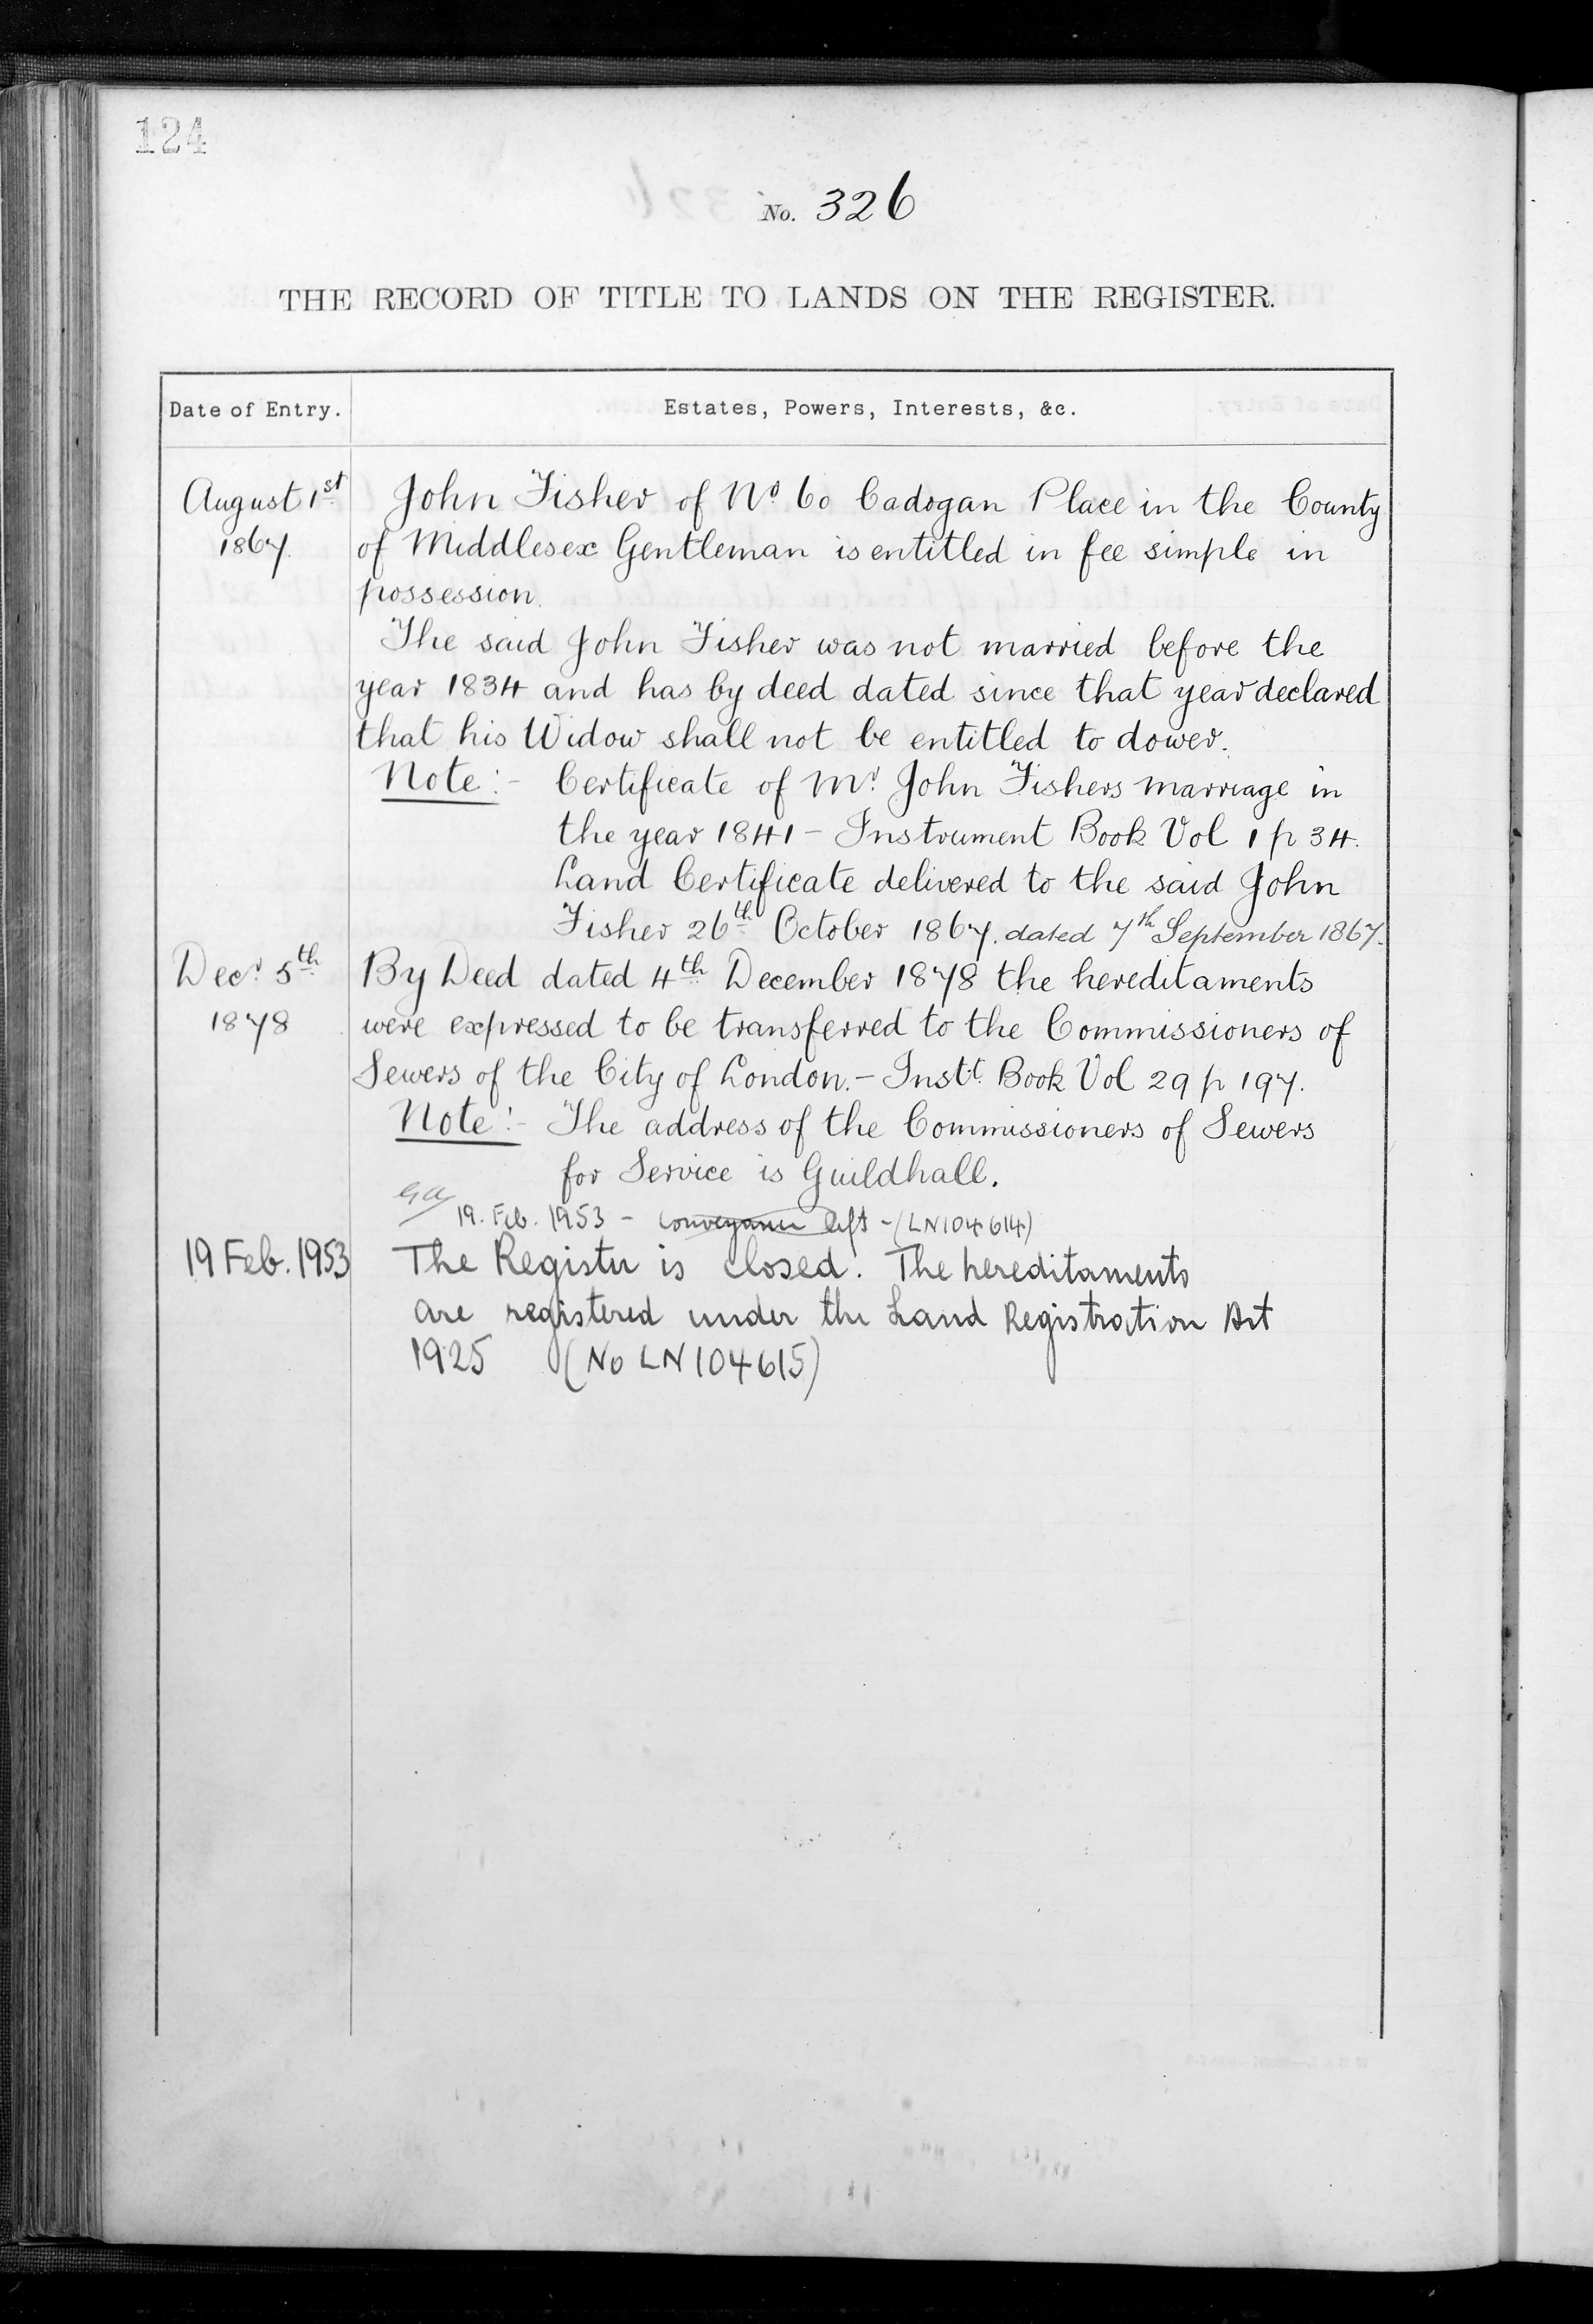 124
No. 326
THE RECORD OF TITLE TO LANDS ON THE REGISTER.
Date of Entry. Estates, Powers, Interests, &c.
August 1st John Fisher of No 60 Cadogan Place in the County
1867. of Middlesex Gentleman is entitled in fee simple in
possession.
The said John Fisher was not married before the
year 1834 and has by deed dated since that year declared
that his Widow shall not be entitled to dower.
Note:- Certificate of Mr. John Fishers marriage in
the year 1841 - Instrument Book Vol 1 p 34.
Land Certificate delivered to the said John
Fisher 26th October 1867. dated 7th September 1867.
Decr. 5th By Deed dated 4th December 1878 the hereditaments
1878 were expressed to be transferred to the Commissioners of
Sewers of the City of London. - Instt. Book Vol 29 p 197.
Note:- The address of the Commissioners of Sewers
for Service is Guildhall.
19. Feb. 1953 - conveyance left - (LN104614)
19 Feb. 1953 The Register is closed. The hereditaments
are registered under the Land Registration Act
1925 (No LN104615)